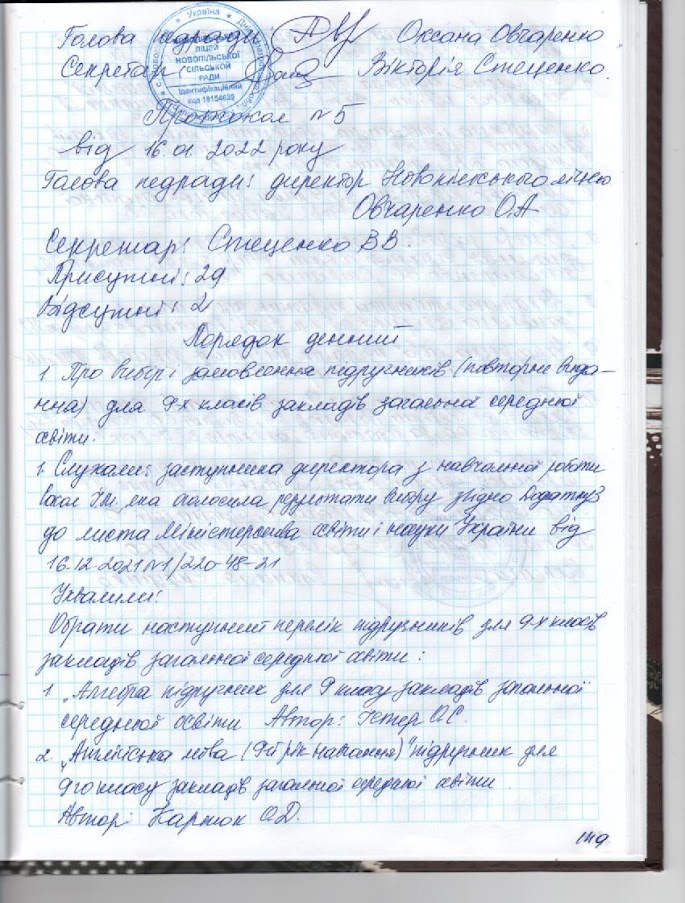 Голова педради: Оксана Овчаренко
Секретар: Вікторія Стеценко.
Україна
ЛІЦЕЙ
НОВОПІЛЬСЬКОЇ
СІЛЬСЬКОЇ
РАДИ
Ідентифікаційний
код 19154639
Протокол №5
від 16.01.2022 року
Голова педради: директор Новопільського ліцею
Овчаренко О.А
Секретар: Стеценко В В.
Присутні: 29
Відсутні: 2
Порядок денний
1 Про вибір і замовлення підручників (повторне вида-
ння) для 9-х класів закладів загальної середньої
освіти.
1. Слухали: заступника директора з навчальної роботи
яка оголосила результати вибору згідно Додатку
до листа Міністерства освіти і науки України від
16.12.2021 №1/220-48-21
Ухвалили:
Обрати наступний перелік підручників для 9-х класів
закладів загальної середньої освіти:
1. „Алгебра підручник для 9 класу закладів загальної
середньої освіти Автор: Істер О.С.
2. „Англійська мова (9й рік навчання)" підручник для
9го класу закладів загальної середньої освіти.
Автор: Карпюк О.Д.
149